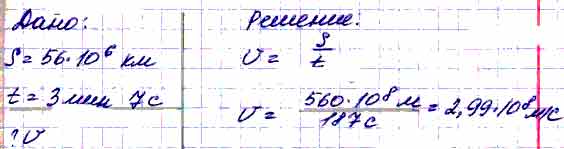 Дано:
S = 56·10⁶ км
t = 3 мин 7с
? υ
Решение:
υ = S/t
υ = 560·10⁸ м / 187с = 2,99·10⁸ м/с